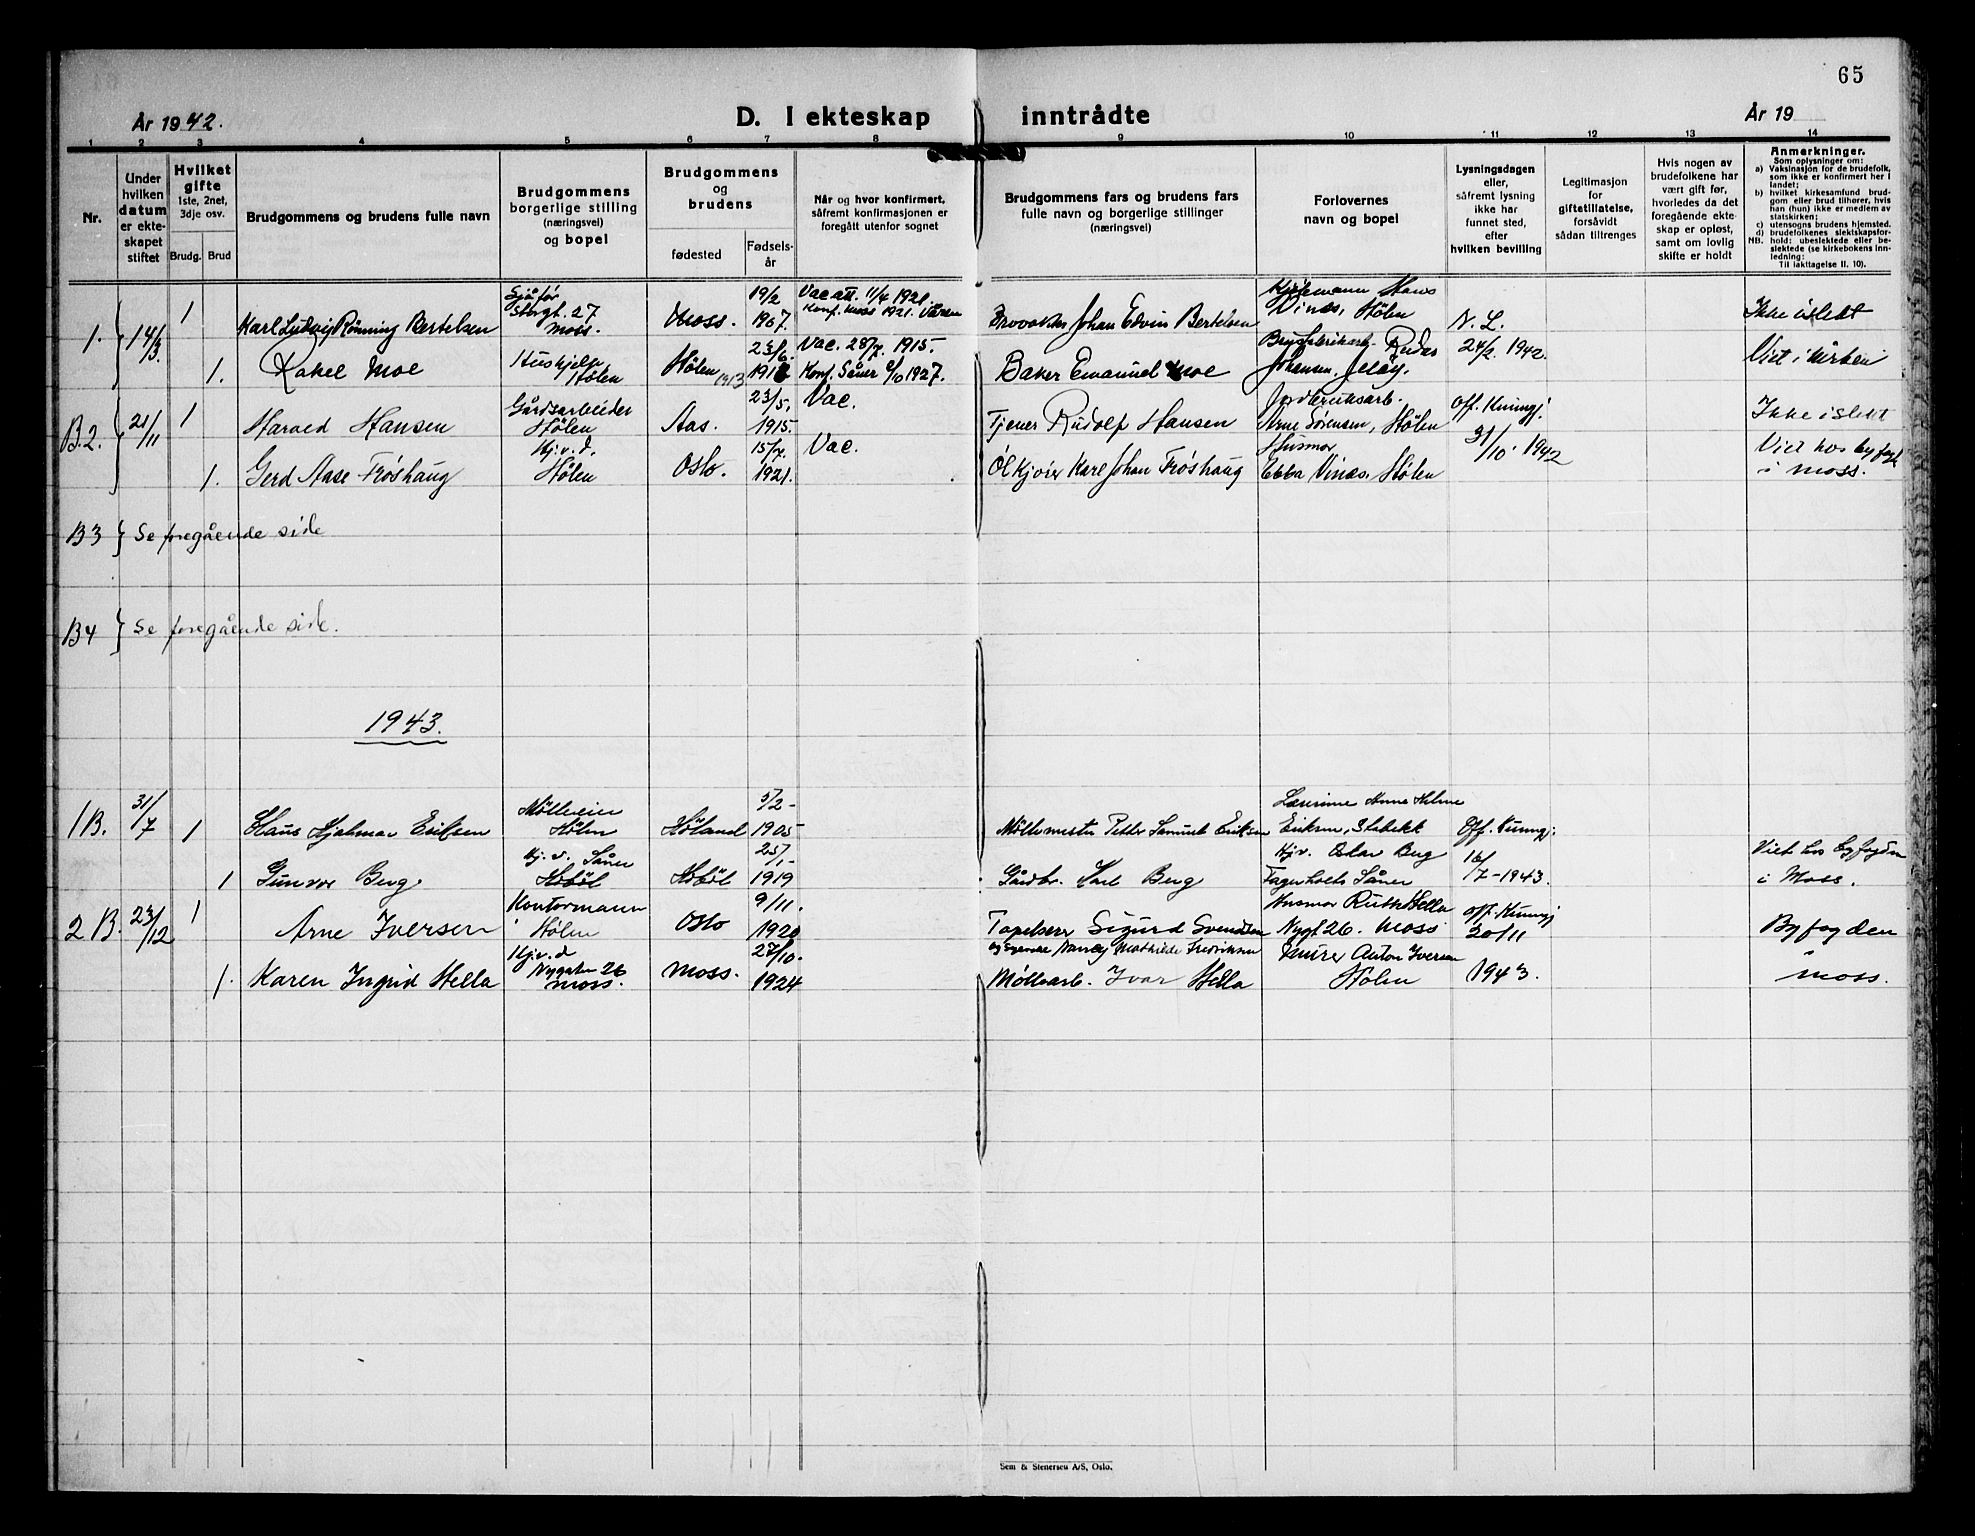 65
År 1942.
D. I ekteskap inntrådte
År 19
1 2 3 4 5 6 7 8 9 10 11 12 13 14
Nr.
Under hvilken datum er ekteskapet stiftet
Hvilket gifte
1ste, 2net, 3dje osv.
Brudg. Brud
Brudgommens og brudens fulle navn
Brudgommens borgerlige stilling (næringsvei) og bopel
Brudgommens og brudens
fødested
Fødselsår
Når og hvor konfirmert, såfremt konfirmasjonen er foregått utenfor sognet
Brudgommens fars og brudens fars fulle navn og borgerlige stillinger (næringsvei)
Forlovernes navn og bopel
Lysningsdagen eller, såfremt lysning ikke har funnet sted, efter hvilken bevilling
Legitimasjon for giftetillatelse, forsåvidt sådan tiltrenges
Hvis nogen av brudefolkene har vært gift før, hvorledes da det foregående ekteskap er opløst, samt om lovlig skifte er holdt
Anmerkninger.
Som oplysninger om:
a) Vaksinasjon for de brudefolk, som ikke er konfirmert her i landet;
b) hvilket kirkesamfund brudgom eller brud tilhører, hvis han (hun) ikke er medlem av statskirken;
c) utensogns brudens hjemsted.
d) brudefolkenes slektskapsforhold: ubeslektede eller beslektede (se kirkebokens innledning;
NB.
Til iakttagelse II. 10).
1. 14/3 1 Karl Ludvig Rønning Bertelsen
Sjåfør Storgt. 27 Moss.
Moss. 19/2 1907.
Vac att. 11/4 1921. Konf. Moss 1921. Våren
Johan Edvin Bertelsen
Hans Vinæs, Hølen
N. L.
Ikke i slekt
1. Rakel Moe
Hushjelp Hølen
Hølen 23/6 1913
Vac. 28/7 1915. Konf. Såner 1927.
Baker Emanuel Moe
Johansen, Jeløy.
24/2 1942.
Viet i kirken
B.2. 21/11 1 Harald Hansen
Gårdsarbeider Hølen
Aas. 23/5. 1915.
Vac.
Tjener Rudolf Hansen
Jordbruksarb. Arne Sørensen, Hølen
Off. Kunngj.
Ikke i slekt
1. Gerd Aase Frøshaug
Hj.v.d. Hølen
Oslo. 15/7. 1921.
Vac.
Ølkjører Karl Johan Frøshaug
Husmor Ebba Vinæs, Hølen
31/10. 1942
Viet hos byfogd i Moss.
B3 } Se foregående side
B4 } Se foregående side.
1943.
1B. 31/7 1 Hans Hjalmar Eriksen
Mølleeier Hølen
Høland 5/2- 1905-
Møllemester Petter Samuel Eriksen
Lærerinne Eriksen, Stabekk
Off. Kunngj:
1 Gunvor Berg.
Hj.v. Såner Hobøl
Hobøl 25/1- 1919
Gårdbr. Karl Berg
Hj.v. Olav Berg Fagerholt Såner
16/7-1943.
Viet hos byfogden i Moss.
2B. 23/12 1 Arne Iversen
Kontormann Hølen
Oslo 9/11. 1920
Tapetserer Sigurd Svendsen
Husmor Ruth Hella Nygt. 26. Moss
Off. Kunngj 20/11
Byfogden
1. Karen Ingrid Hella
Hj.v.d Nygaten 26 Moss.
Moss. 27/10. 1924
og Nancy Mathilde Fredriksen
Møllearb. Ivar Hella
Murer Anton Iversen Hølen
1943.
i Moss.
Sem & Stenersen A/S, Oslo.